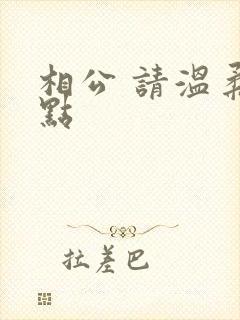 相公 請溫柔
點
拉差巴